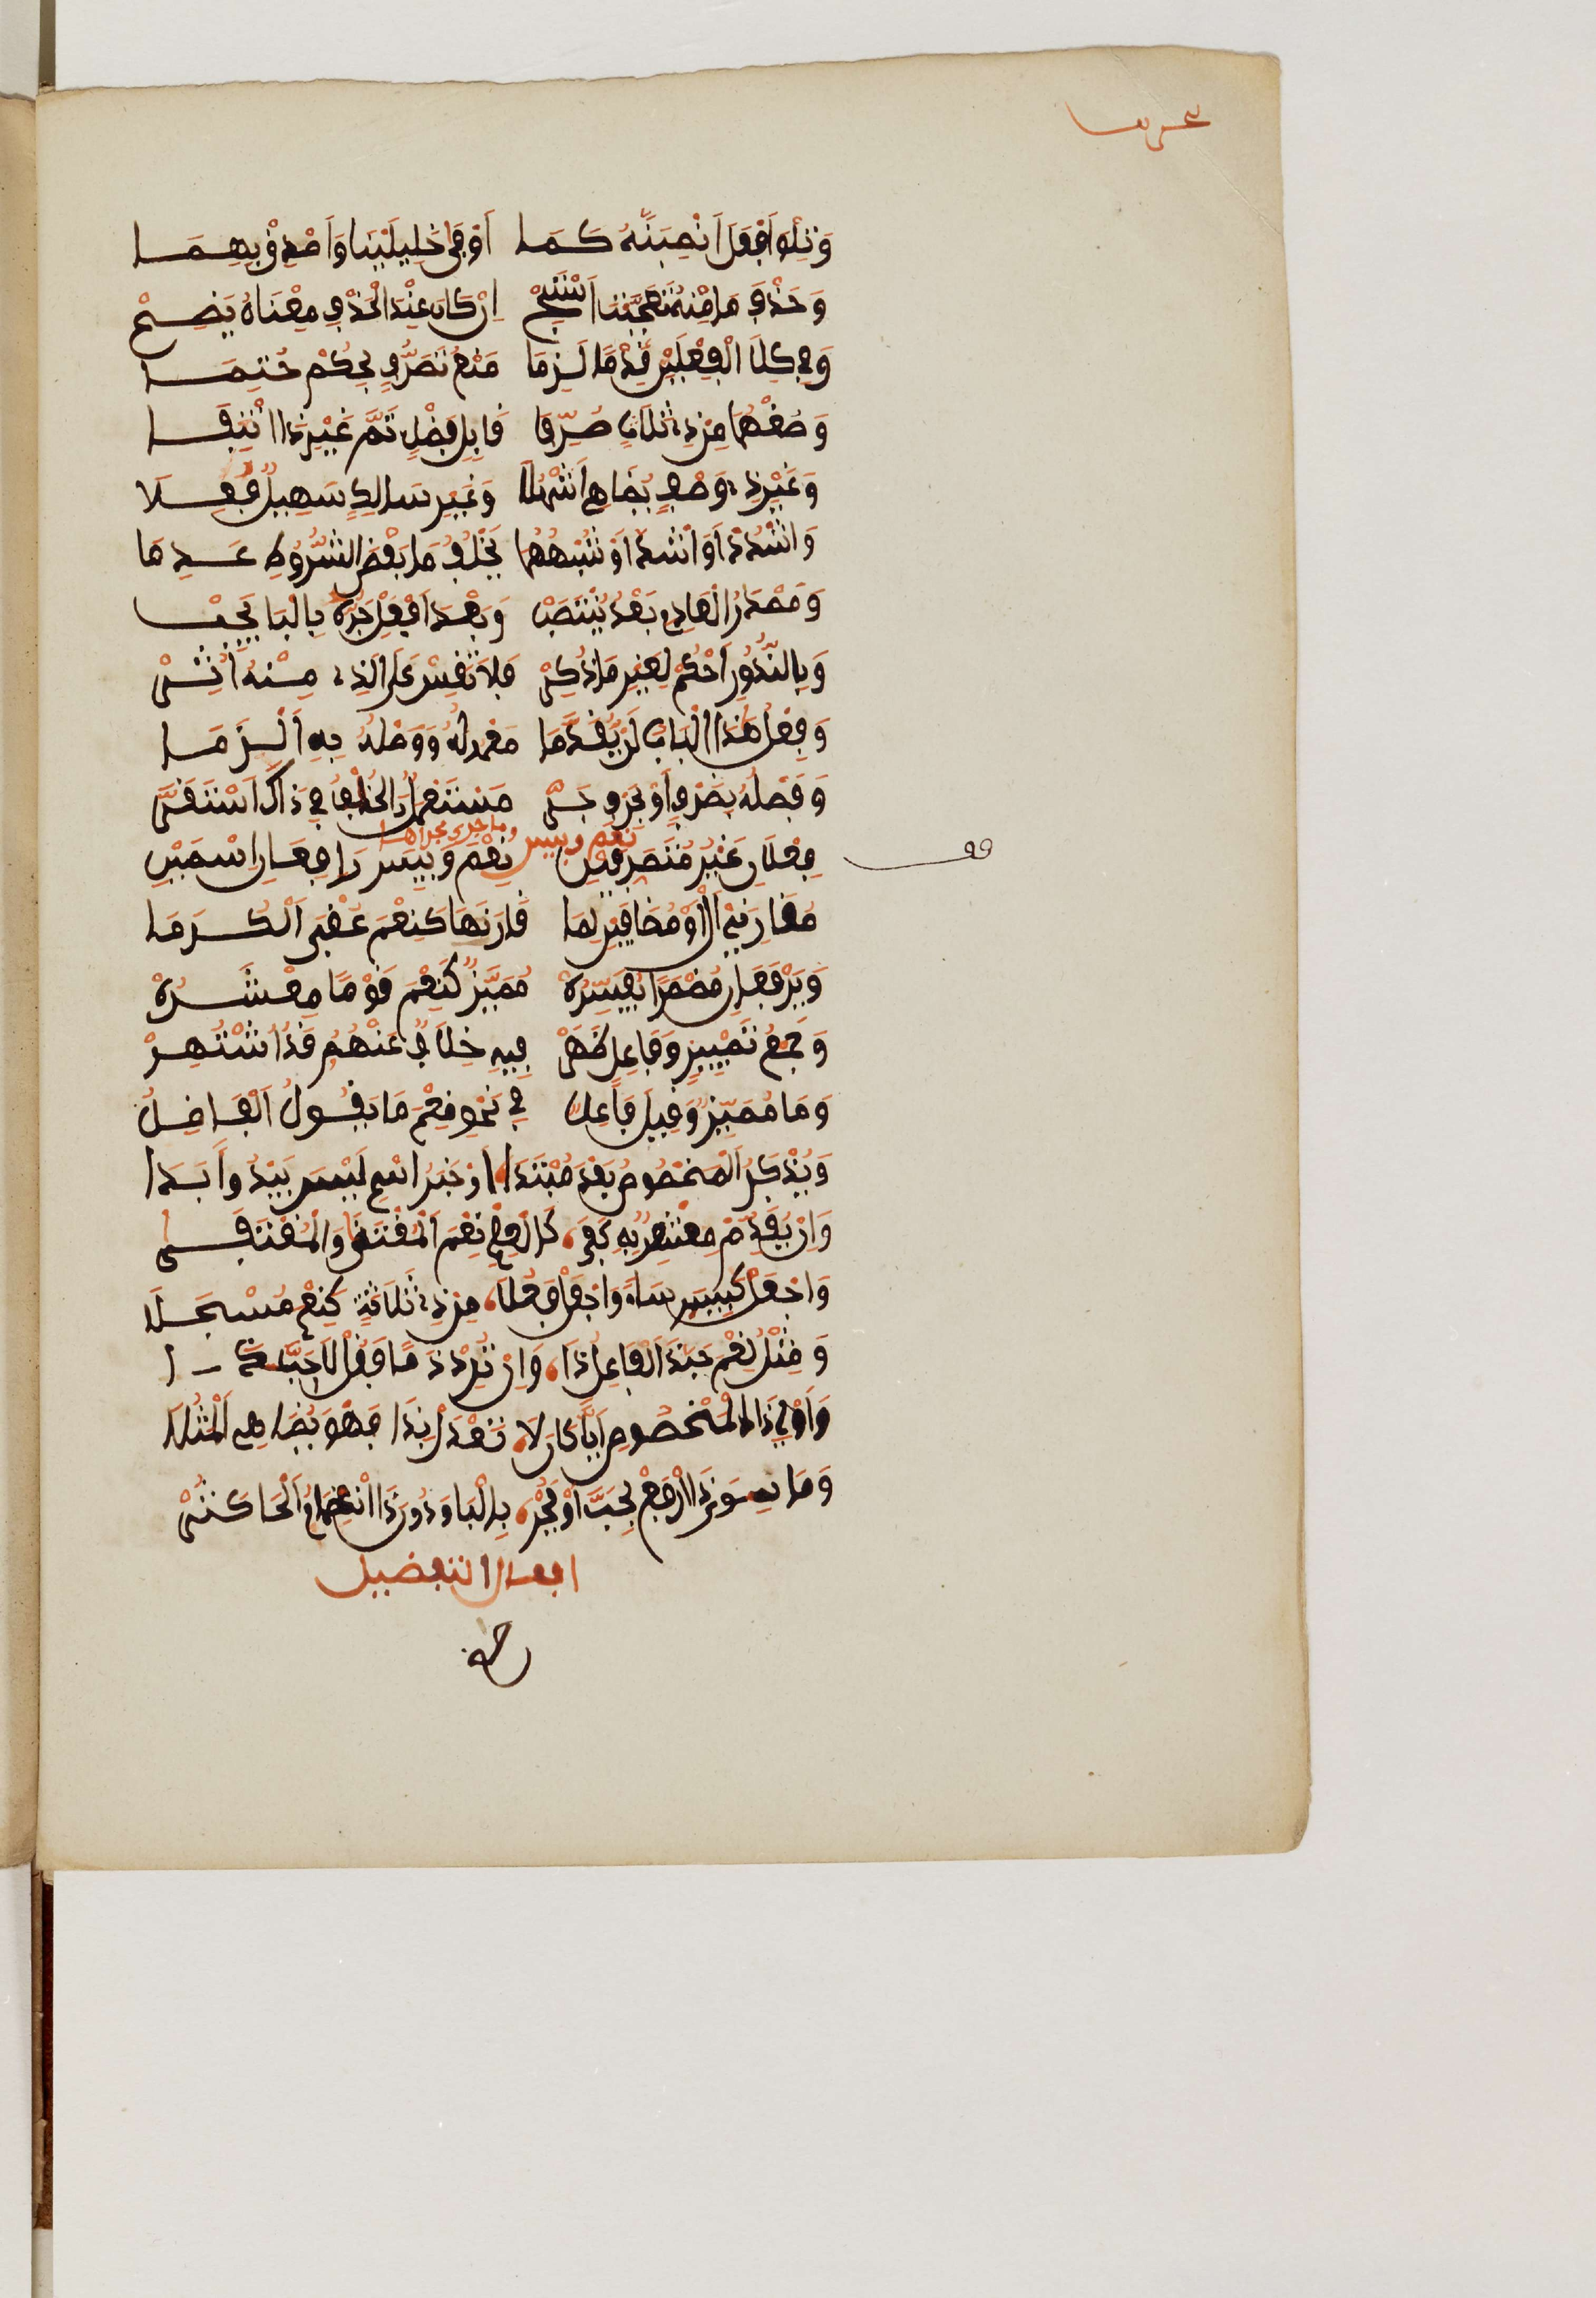 وَتِلْوَ أَفْعَلَ انْصِبَنَّهُ كَمَا أَوْفَى خَلِيلَيْنَا وَأَصْدِقْ بِهِمَا
وَحَذْفَ مَا مِنْهُ تَعَجَّبْتَ اسْتَبِحْ إِنْ كَانَ عِنْدَ الْحَذْفِ مَعْنَاهُ يَضِحْ
وَفِي كِلَا الْفِعْلَيْنِ قِدْمًا لَزِمَا مَنْعُ تَصَرُّفٍ بِحُكْمٍ حُتِمَا
وَصُغْهُمَا مِنْ ذِي ثَلَاثٍ صُرِّفَا قَابِلِ فَضْلٍ تَمَّ غَيْرِ ذِي انْتِفَا
وَغَيْرِ ذِي وَصْفٍ يُضَاهِي أَشْهَلَا وَغَيْرِ سَالِكٍ سَبِيلَ فُعِلَا
وَأَشْدِدْ أَوْ أَشَدَّ أَوْ شِبْهُهُمَا يَخْلُفُ مَا بَعْضَ الشُّرُوطِ عَدِمَا
وَمَصْدَرُ الْعَادِمِ بَعْدُ يَنْتَصِبْ وَبَعْدَ أَفْعِلْ جَرُّهُ بِالْبَا يَجِبْ
وَبِالنُّدُورِ احْكُمْ لِغَيْرِ مَا ذُكِرْ فَلَا تَقِسْ عَلَى الَّذِي مِنْهُ أُثِرْ
وَفِعْلُ هَذَا الْبَابِ لَنْ يُقَدَّمَا مَعْمُولُهُ وَوَصْلُهُ بِهِ الْزَمَا
وَفَصْلُهُ بِظَرْفٍ أَوْ بِحَرْفِ جَرْ مُسْتَعْمَلٌ وَالْخُلْفُ فِي ذَاكَ اسْتَقَرْ
نعم وبيس وما جرى مجراهما
فِعْلَانِ غَيْرُ مُتَصَرِّفَيْنِ نِعْمَ وَبِيسَ رَافِعَانِ اسْمَيْنِ
قف
مُقَارِنَيْ أَلْ أَوْ مُضَافَيْنِ لِمَا قَارَنَهَا كَنِعْمَ عُقْبَى الْكُرَمَا
وَيَرْفَعَانِ مُضْمَرًا يُفَسِّرُهْ مُمَيِّزٌ كَنِعْمَ قَوْمًا مَعْشَرُهْ
وَجَمْعُ تَمْيِيزٍ وَفَاعِلٍ ظَهَرْ فِيهِ خِلَافٌ عَنْهُمُ قَدِ اشْتَهَرْ
وَمَا مُمَيِّزٌ وَقِيلَ فَاعِلُ فِي نَحْوِ نِعْمَ مَا يَقُولُ الْفَاضِلُ
وَيُذْكَرُ الْمَخْصُوصُ بَعْدُ مُبْتَدَا أَوْ خَبَرَ اسْمٍ لَيْسَ يَبْدُو أَبَدَا
وَإِنْ يُقَدَّمْ مُشْعِرٌ بِهِ كَفَى كَالْعِلْمُ نِعْمَ الْمُقْتَنَى وَالْمُقْتَفَى
وَاجْعَلْ كَبِيسَ سَاءَ وَاجْعَلْ فَعُلَا مِنْ ذِي ثَلَاثَةٍ كَنِعْمَ مُسْجَلَا
وَمِثْلُ نِعْمَ حَبَّذَا الْفَاعِلُ ذَا وَإِنْ تُرِدْ ذَمًّا فَقُلْ لَا حَبَّذَا
وَأَوْلِ ذَا الْمَخْصُوصَ أَيًّا كَانَ لَا تَعْدِلْ بِذَا فَهْوَ يُضَاهِي الْمَثَلَا
وَمَا سِوَى ذَا ارْفَعْ بِحَبَّ أَوْ فَجُرْ بِالْبَا وَدُونَ ذَا انْضِمَامُ الْحَا كَثُرْ
افعل التفضيل